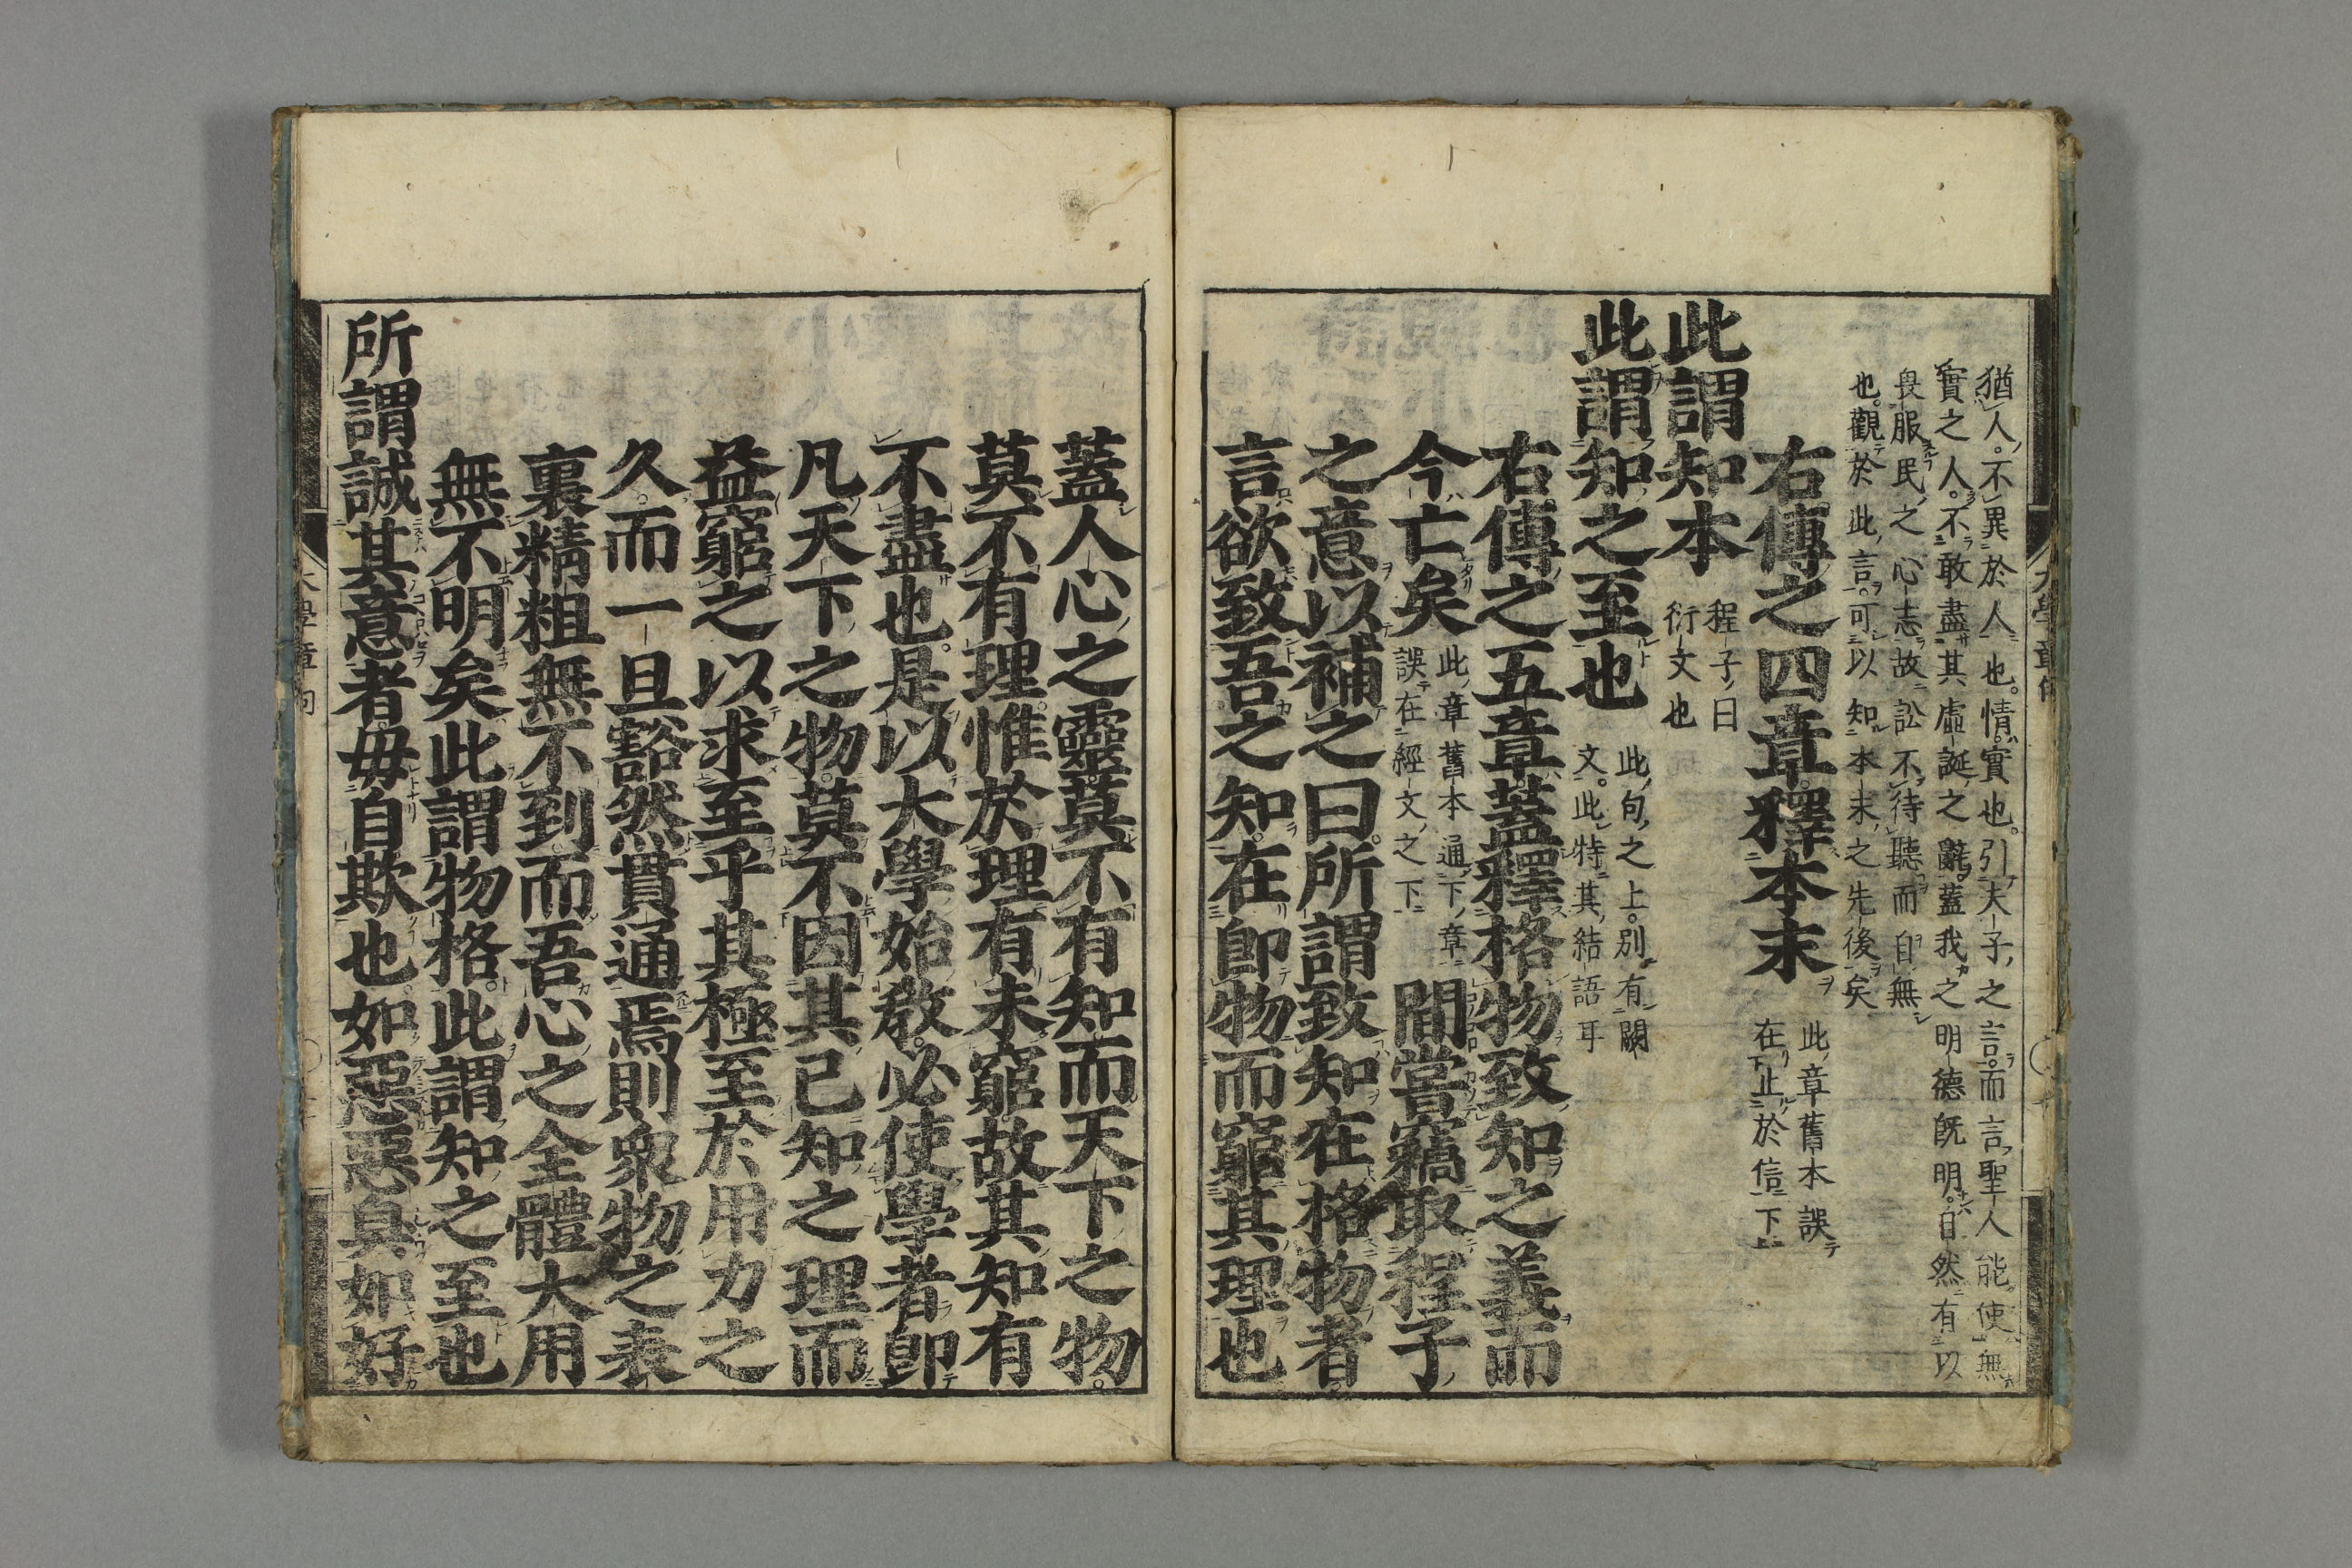 猶人不異於人也。情實也。引夫子之言。而言聖人能使無
實之人。不敢盡其虛誕之辭。蓋我之明德既明。自然有以
畏服民之心志。故訟不待聽而自無
也。觀於此言。可以知本末之先後矣
右傳之四章釋本末
此章舊本誤
在止於信下
此謂知本
程子曰
衍文也
此謂知之至也
此句之上。別有闕
文。此特其結語耳
右傳之五章蓋釋格物致知之義而
今亡矣
此章舊本通下章
誤在經文之下
閒嘗竊取程子
之意以補之曰。所謂致知在格物者。
言欲致吾之知。在卽物而窮其理也
蓋人心之靈。莫不有知。而天下之物。
莫不有理。惟於理有未窮。故其知有
不盡也。是以大學始敎。必使學者卽
凡天下之物。莫不因其已知之理而
益窮之。以求至乎其極。至於用力之
久。而一旦豁然貫通焉。則衆物之表
裏精粗無不到。而吾心之全體大用
無不明矣。此謂物格。此謂知之至也
所謂誠其意者。毋自欺也。如惡惡臭。如好
大學章句